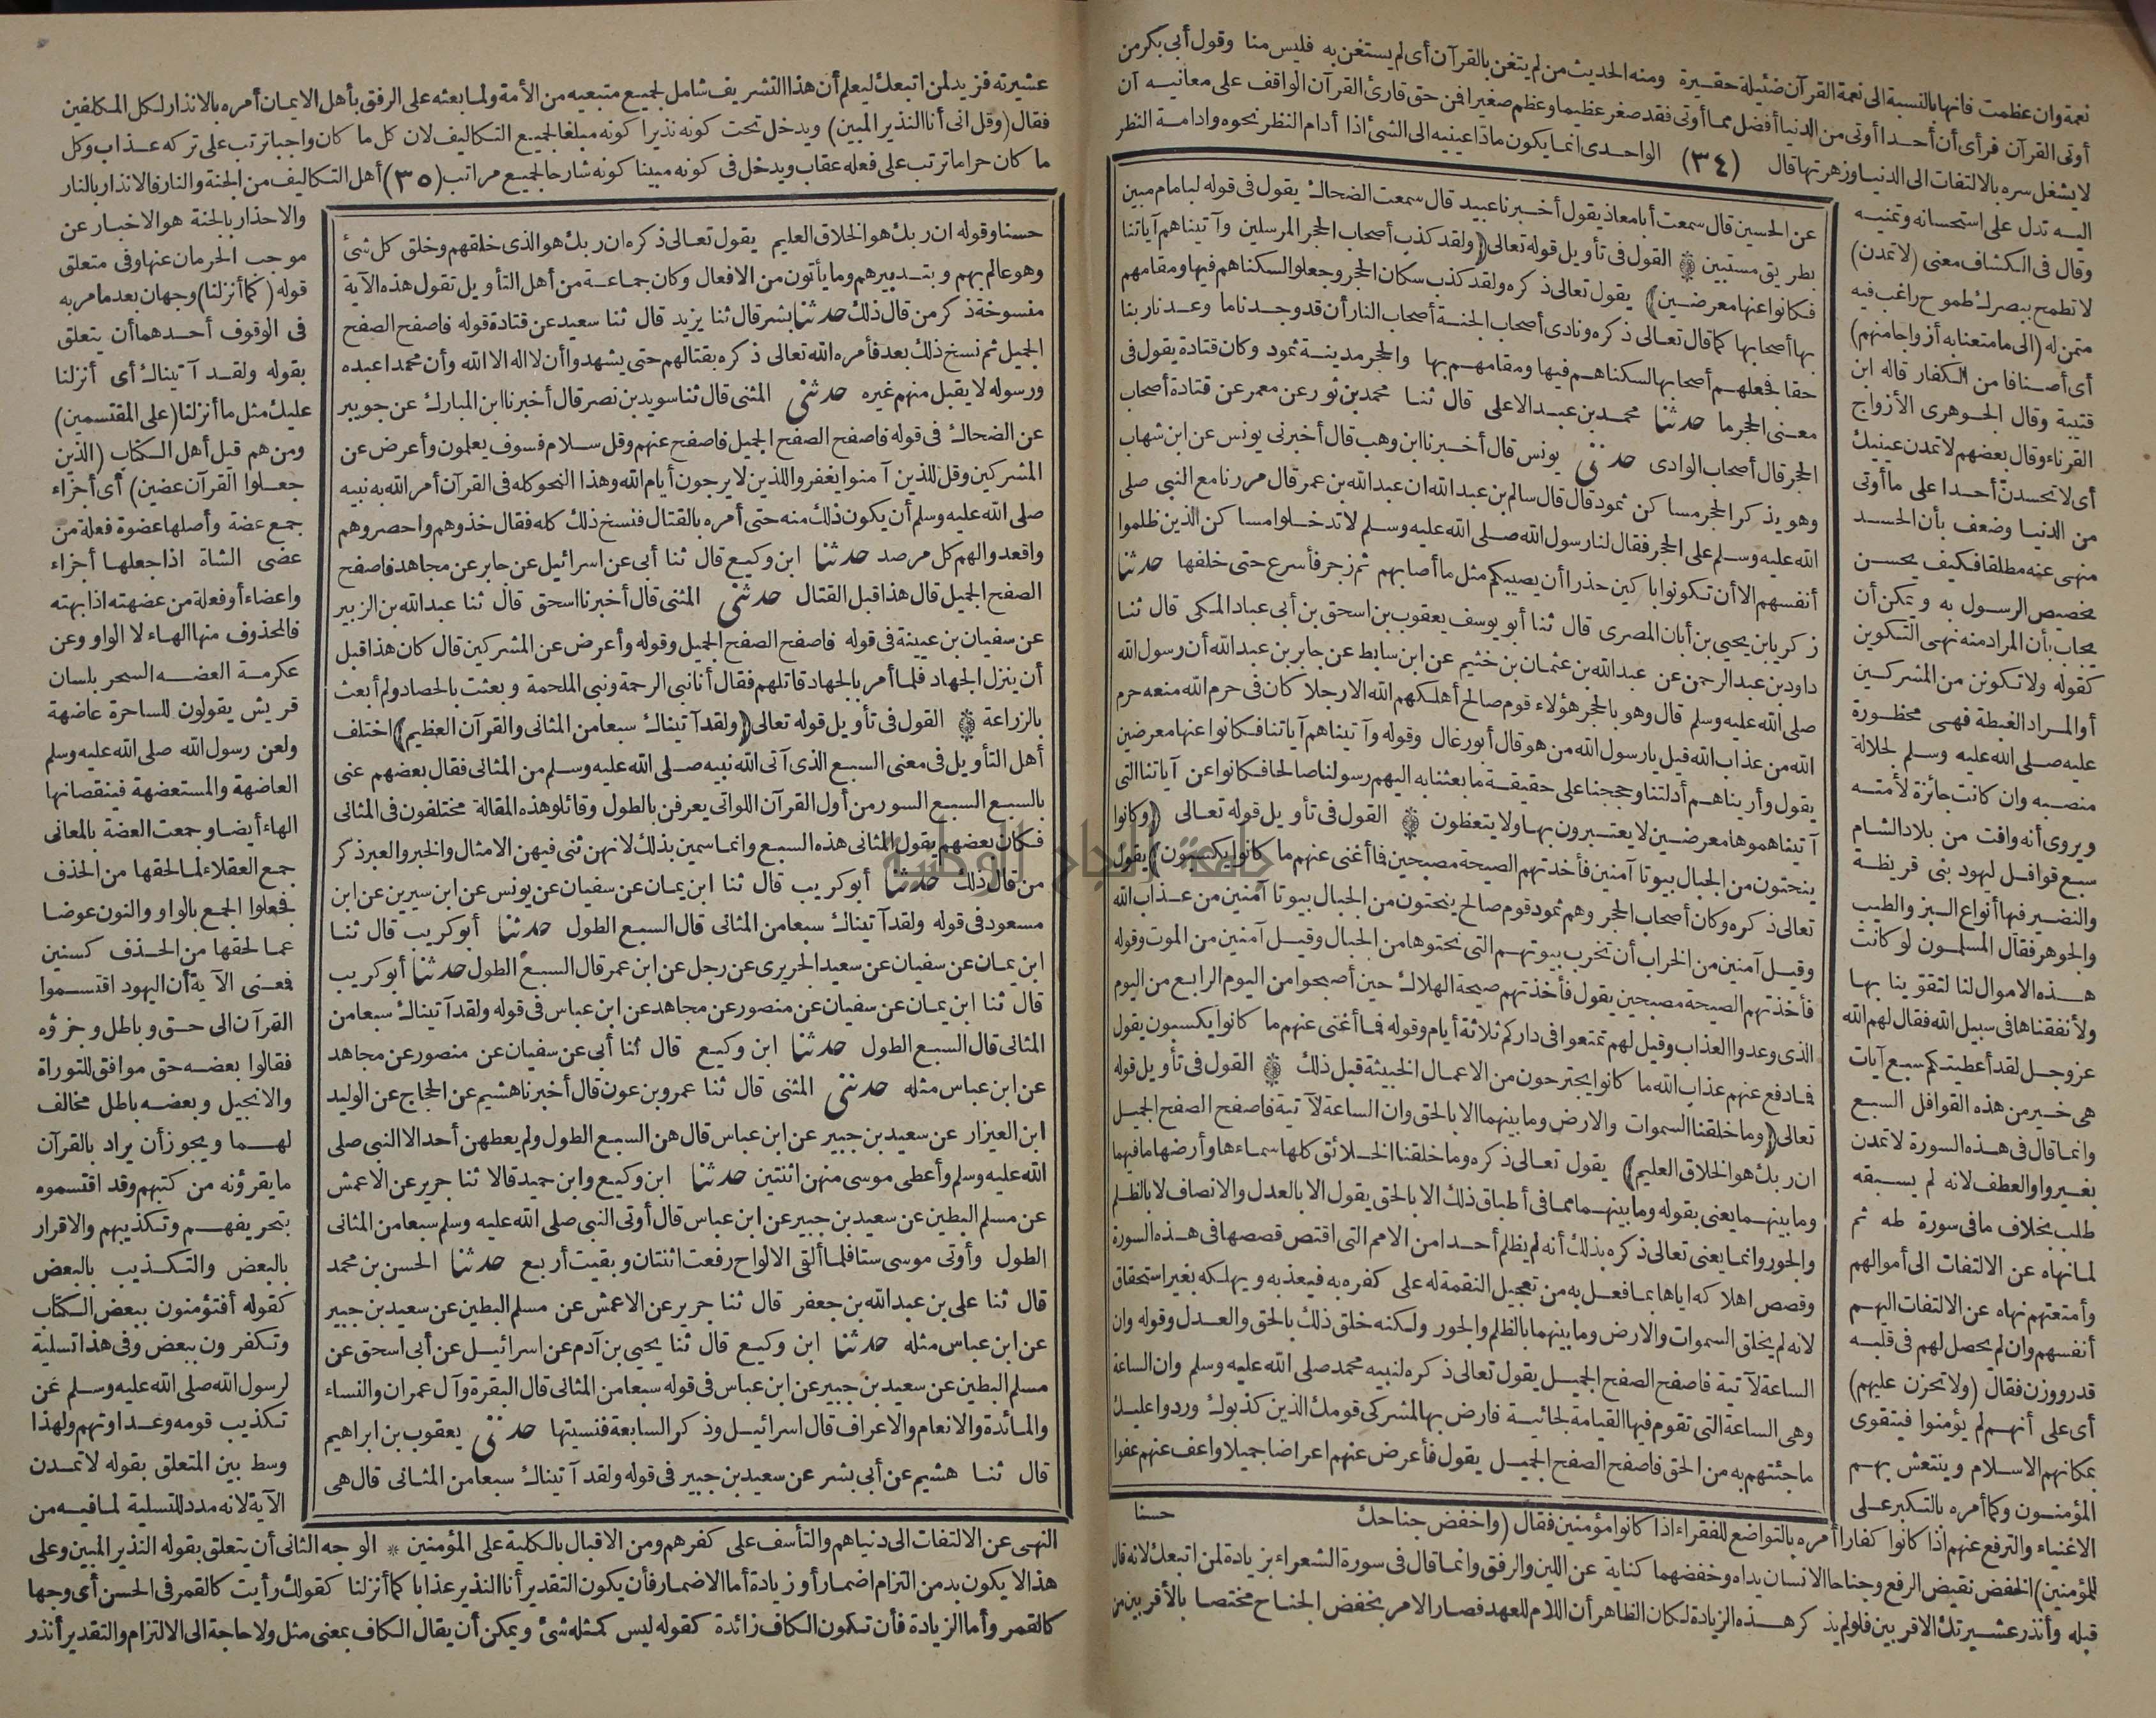 نعمة وان عظمت فانها بالنسبة الى نعمة القرآن ضئيلة حقيرة ومنه الحديث من لم يتغن بالقرآن أى لم يستغن به فليس منا وقول أبى بكر من
أوتى القرآن فرأى أن أحدا أوتى من الدنيا أفضل مما أوتى فقد صغر عظيما وعظم صغيرا فمن حق قارئ القرآن الواقف على معانيه أن
لا يشغل سره بالالتفات الى الدنيا وزهرتها قال (٣٤) الواحدى انما يكون مادّا عينيه الى الشئ اذا أدام النظر نحوه وادامة النظر
اليه تدل على استحسانه وتمنيه
وقال فى الكشاف معنى (لا تمدن)
لا تطمح ببصرك طموح راغب فيه
متمن له (الى ما متعنا به أزواجا منهم)
أى أصنافا من الكفار قاله ابن
قتيبة وقال الجوهرى الأزواج
القرناء وقال بعضهم لا تمدن عينيك
أى لا تحسدنّ أحدا على ما أوتى
من الدنيا وضعف بأن الحسد
منهى عنه مطلقا فكيف يحسن
تخصيص الرسول به ويمكن أن
يجاب بأن المراد منه نهى التكوين
كقوله ولا تكونن من المشركين
أو المراد الغبطة فهى محظورة
عليه صلى الله عليه وسلم لجلالة
منصبه وان كانت جائزة لأمته
ويروى أنه وافت من بلاد الشام
سبع قوافل ليهود بنى قريظة
والنضير فيها أنواع البز والطيب
والجوهر فقال المسلمون لو كانت
هذه الاموال لنا لتقوينا بها
ولأنفقناها فى سبيل الله فقال لهم الله
عز وجل لقد أعطيتكم سبع آيات
هى خير من هذه القوافل السبع
وانما قال فى هذه السورة لا تمدن
بغير واو العطف لانه لم يسبقه
طلب بخلاف ما فى سورة طه ثم
لما نهاه عن الالتفات الى أموالهم
وأمتعتهم نهاه عن الالتفات اليهم
أنفسهم وان لم يحصل لهم فى قلبه
قدر ووزن فقال (ولا تحزن عليهم)
أى على أنهم لم يؤمنوا فيتقوى
بمكانهم الاسلام وينتعش بهم
المؤمنون وكما أمره بالتكبر على
عن الحسين قال سمعت أبا معاذ يقول أخبرنا عبيد قال سمعت الضحاك يقول فى قوله لبامام مبين
بطريق مستبين ۞ القول فى تأويل قوله تعالى (ولقد كذب أصحاب الحجر المرسلين وآتيناهم آياتنا
فكانوا عنها معرضين) يقول تعالى ذكره ولقد كذب سكان الحجر وجعلوا لسكناهم فيها ومقامهم
بها أصحابها كما قال تعالى ذكره ونادى أصحاب الجنة أصحاب النار أن قد وجدنا ما وعدنا ربنا
حقا فجعلهم أصحابها لسكناهم فيها ومقامهم بها والحجر مدينة ثمود وكان قتادة يقول فى
معنى الحجر ما حدثنا محمد بن عبد الاعلى قال ثنا محمد بن ثور عن معمر عن قتادة أصحاب
الحجر قال أصحاب الوادى حدثنى يونس قال أخبرنا ابن وهب قال أخبرنى يونس عن ابن شهاب
وهو يذكر الحجر مساكن ثمود قال قال سالم بن عبد الله ان عبد الله بن عمر قال مررنا مع النبى صلى
الله عليه وسلم على الحجر فقال لنا رسول الله صلى الله عليه وسلم لا تدخلوا مساكن الذين ظلموا
أنفسهم الا أن تكونوا باكين حذرا أن يصيبكم مثل ما أصابهم ثم زجر فأسرع حتى خلفها حدثنا
زكريا بن يحيى بن أبان المصرى قال ثنا أبو يوسف يعقوب بن اسحق بن أبى عباد المكى قال ثنا
داود بن عبد الرحمن عن عبد الله بن عثمان بن خثيم عن ابن سابط عن جابر بن عبد الله أن رسول الله
صلى الله عليه وسلم قال وهو بالحجر هؤلاء قوم صالح أهلكهم الله الا رجلا كان فى حرم الله منعه حرم
الله من عذاب الله قيل يا رسول الله من هو قال أبو رغال وقوله وآتيناهم آياتنا فكانوا عنها معرضين
يقول وأريناهم أدلتنا وحججنا على حقيقة ما بعثنا به اليهم رسولنا صالحا فكانوا عن آياتنا التى
آتيناهموها معرضين لا يعتبرون بها ولا يتعظون ۞ القول فى تأويل قوله تعالى (وكانوا
ينحتون من الجبال بيوتا آمنين فأخذتهم الصيحة مصبحين فما أغنى عنهم ما كانوا يكسبون) يقول
تعالى ذكره وكان أصحاب الحجر وهم ثمود قوم صالح ينحتون من الجبال بيوتا آمنين من عذاب الله
وقيل آمنين من الخراب أن تخرب بيوتهم التى نحتوها من الجبال وقيل آمنين من الموت وقوله
فأخذتهم الصيحة مصبحين يقول فأخذتهم صيحة الهلاك حين أصبحوا من اليوم الرابع من اليوم
الذى وعدوا العذاب وقيل لهم تمتعوا فى داركم ثلاثة أيام وقوله فما أغنى عنهم ما كانوا يكسبون يقول
فما دفع عنهم عذاب الله ما كانوا يجترحون من الاعمال الخبيثة قبل ذلك ۞ القول فى تأويل قوله
تعالى (وما خلقنا السموات والارض وما بينهما الا بالحق وان الساعة لآتية فاصفح الصفح الجميل
ان ربك هو الخلاق العليم) يقول تعالى ذكره وما خلقنا الخلائق كلها سماءها وأرضها ما فيهما
وما بينهما يعنى بقوله وما بينهما مما فى أطباق ذلك الا بالحق يقول الا بالعدل والانصاف لا بالظلم
والجور وانما يعنى تعالى ذكره بذلك أنه لم يظلم أحدا من الامم التى اقتص قصصها فى هذه السورة
وقصص اهلاكه اياها بما فعل به من تعجيل النقمة له على كفره به فيعذبه ويهلكه بغير استحقاق
لانه لم يخلق السموات والارض وما بينهما بالظلم والجور ولكنه خلق ذلك بالحق والعدل وقوله وان
الساعة لآتية فاصفح الصفح الجميل يقول تعالى ذكره لنبيه محمد صلى الله عليه وسلم وان الساعة
وهى الساعة التى تقوم فيها القيامة لجائية فارض بها لمشركى قومك الذين كذبوك وردوا عليك
ما جئتهم به من الحق فاصفح الصفح الجميل يقول فأعرض عنهم اعراضا جميلا واعف عنهم عفوا
حسنا
الاغنياء والترفع عنهم اذا كانوا كفارا أمره بالتواضع للفقراء اذا كانوا مؤمنين فقال (واخفض جناحك
للمؤمنين) الخفض نقيض الرفع وجناحا الانسان يداه وخفضهما كناية عن اللين والرفق وانما قال فى سورة الشعراء بزيادة لمن اتبعك لانه قال
قبله وأنذر عشيرتك الاقربين فلو لم يذكر هذه الزيادة لكان الظاهر أن اللام للعهد فصار الامر بخفض الجناح مختصا بالأقربين من
عشيرته فزيد لمن اتبعك ليعلم أن هذا التشريف شامل لجميع متبعيه من الأمة ولما بعثه على الرفق بأهل الايمان أمره بالانذار لكل المكلفين
فقال (وقل انى أنا النذير المبين) ويدخل تحت كونه نذيرا كونه مبلغا لجميع التكاليف لان كل ما كان واجبا ترتب على تركه عذاب وكل
ما كان حراما ترتب على فعله عقاب ويدخل فى كونه مبينا كونه شارحا لجميع مراتب (٣٥) أهل التكاليف من الجنة والنار فالانذار بالنار
والاحذار بالجنة هو الاخبار عن
موجب الحرمان عنها وفى متعلق
قوله (كما أنزلنا) وجهان بعد ما مر به
فى الوقوف أحدهما أن يتعلق
بقوله ولقد آتيناك أى أنزلنا
عليك مثل ما أنزلنا (على المقتسمين)
ومن هم قيل أهل الكتاب (الذين
جعلوا القرآن عضين) أى أجزاء
جمع عضة وأصلها عضوة فعلة من
عضى الشاة اذا جعلها أجزاء
واعضاء أو فعلة من عضهته اذا بهته
فالمحذوف منها الهاء لا الواو وعن
عكرمة العضه السحر بلسان
قريش يقولون للساحرة عاضهة
ولعن رسول الله صلى الله عليه وسلم
العاضهة والمستعضهة فينقصانها
الهاء أيضا وجمعت العضة بالمعانى
جمع العقلاء لما لحقها من الحذف
فجعلوا الجمع بالواو والنون عوضا
عما لحقها من الحذف كسنين
فمعنى الآية أن اليهود اقتسموا
القرآن الى حق وباطل وجزؤه
فقالوا بعضه حق موافق للتوراة
والانجيل وبعضه باطل مخالف
لهما ويجوز أن يراد بالقرآن
ما يقرؤنه من كتبهم وقد اقتسموه
بتحريفهم وتكذيبهم والاقرار
بالبعض والتكذيب بالبعض
كقوله أفتؤمنون ببعض الكتاب
وتكفرون ببعض وفى هذا تسلية
لرسول الله صلى الله عليه وسلم عن
تكذيب قومه وعداوتهم ولهذا
وسط بين المتعلق بقوله لا تمدن
الآية لانه مدد للتسلية لما فيه من
حسنا وقوله ان ربك هو الخلاق العليم يقول تعالى ذكره ان ربك هو الذى خلقهم وخلق كل شئ
وهو عالم بهم وبتدبيرهم وما يأتون من الافعال وكان جماعة من أهل التأويل تقول هذه الآية
منسوخة ذكر من قال ذلك حدثنا بشر قال ثنا يزيد قال ثنا سعيد عن قتادة قوله فاصفح الصفح
الجميل ثم نسخ ذلك بعد فأمره الله تعالى ذكره بقتالهم حتى يشهدوا أن لا اله الا الله وأن محمدا عبده
ورسوله لا يقبل منهم غيره حدثنى المثنى قال ثنا سويد بن نصر قال أخبرنا ابن المبارك عن جويبر
عن الضحاك فى قوله فاصفح الصفح الجميل فاصفح عنهم وقل سلام فسوف يعلمون وأعرض عن
المشركين وقل للذين آمنوا يغفروا للذين لا يرجون أيام الله وهذا النحو كله فى القرآن أمر الله به نبيه
صلى الله عليه وسلم أن يكون ذلك منه حتى أمره بالقتال فنسخ ذلك كله فقال خذوهم واحصروهم
واقعدوا لهم كل مرصد حدثنا ابن وكيع قال ثنا أبى عن اسرائيل عن جابر عن مجاهد فاصفح
الصفح الجميل قال هذا قبل القتال حدثنى المثنى قال أخبرنا اسحق قال ثنا عبد الله بن الزبير
عن سفيان بن عيينة فى قوله فاصفح الصفح الجميل وقوله وأعرض عن المشركين قال كان هذا قبل
أن ينزل الجهاد فلما أمر بالجهاد قاتلهم فقال أنا نبى الرحمة ونبى الملحمة وبعثت بالحصاد ولم أبعث
بالزراعة ۞ القول فى تأويل قوله تعالى (ولقد آتيناك سبعا من المثانى والقرآن العظيم) اختلف
أهل التأويل فى معنى السبع الذى آتى الله نبيه صلى الله عليه وسلم من المثانى فقال بعضهم عنى
بالسبع السبع السور من أول القرآن اللواتى يعرفن بالطول وقائلو هذه المقالة مختلفون فى المثانى
فكان بعضهم يقول المثانى هذه السبع وانما سمين بذلك لانهن ثنى فيهن الامثال والخبر والعبر ذكر
من قال ذلك حدثنا أبو كريب قال ثنا ابن يمان عن سفيان عن يونس عن ابن سيرين عن ابن
مسعود فى قوله ولقد آتيناك سبعا من المثانى قال السبع الطول حدثنا أبو كريب قال ثنا
ابن يمان عن سفيان عن سعيد الجريرى عن رجل عن ابن عمر قال السبع الطول حدثنا أبو كريب
قال ثنا ابن يمان عن سفيان عن منصور عن مجاهد عن ابن عباس فى قوله ولقد آتيناك سبعا من
المثانى قال السبع الطول حدثنا ابن وكيع قال ثنا أبى عن سفيان عن منصور عن مجاهد
عن ابن عباس مثله حدثنى المثنى قال ثنا عمرو بن عون قال أخبرنا هشيم عن الحجاج عن الوليد
ابن العيزار عن سعيد بن جبير عن ابن عباس قال هن السبع الطول ولم يعطهن أحد الا النبى صلى
الله عليه وسلم وأعطى موسى منهن اثنتين حدثنا ابن وكيع وابن حميد قالا ثنا جرير عن الاعمش
عن مسلم البطين عن سعيد بن جبير عن ابن عباس قال أوتى النبى صلى الله عليه وسلم سبعا من المثانى
الطول وأوتى موسى ستا فلما ألقى الالواح رفعت اثنتان وبقيت أربع حدثنا الحسن بن محمد
قال ثنا على بن عبد الله بن جعفر قال ثنا جرير عن الاعمش عن مسلم البطين عن سعيد بن جبير
عن ابن عباس مثله حدثنا ابن وكيع قال ثنا يحيى بن آدم عن اسرائيل عن أبى اسحق عن
مسلم البطين عن سعيد بن جبير عن ابن عباس فى قوله سبعا من المثانى قال البقرة وآل عمران والنساء
والمائدة والانعام والاعراف قال اسرائيل وذكر السابعة فنسيتها حدثنى يعقوب بن ابراهيم
قال ثنا هشيم عن أبى بشر عن سعيد بن جبير فى قوله ولقد آتيناك سبعا من المثانى قال هى
النهى عن الالتفات الى دنياهم والتأسف على كفرهم ومن الاقبال بالكلية على المؤمنين * الوجه الثانى أن يتعلق بقوله النذير المبين وعلى
هذا لا يكون بد من التزام اضمار أو زيادة أما الاضمار فأن يكون التقدير أنا النذير عذابا كما أنزلنا كقولك رأيت كالقمر فى الحسن أى وجها
كالقمر وأما الزيادة فأن تكون الكاف زائدة كقوله ليس كمثله شئ ويمكن أن يقال الكاف بمعنى مثل ولا حاجة الى الالتزام والتقدير أنذر
جامعة النجاح الوطنية